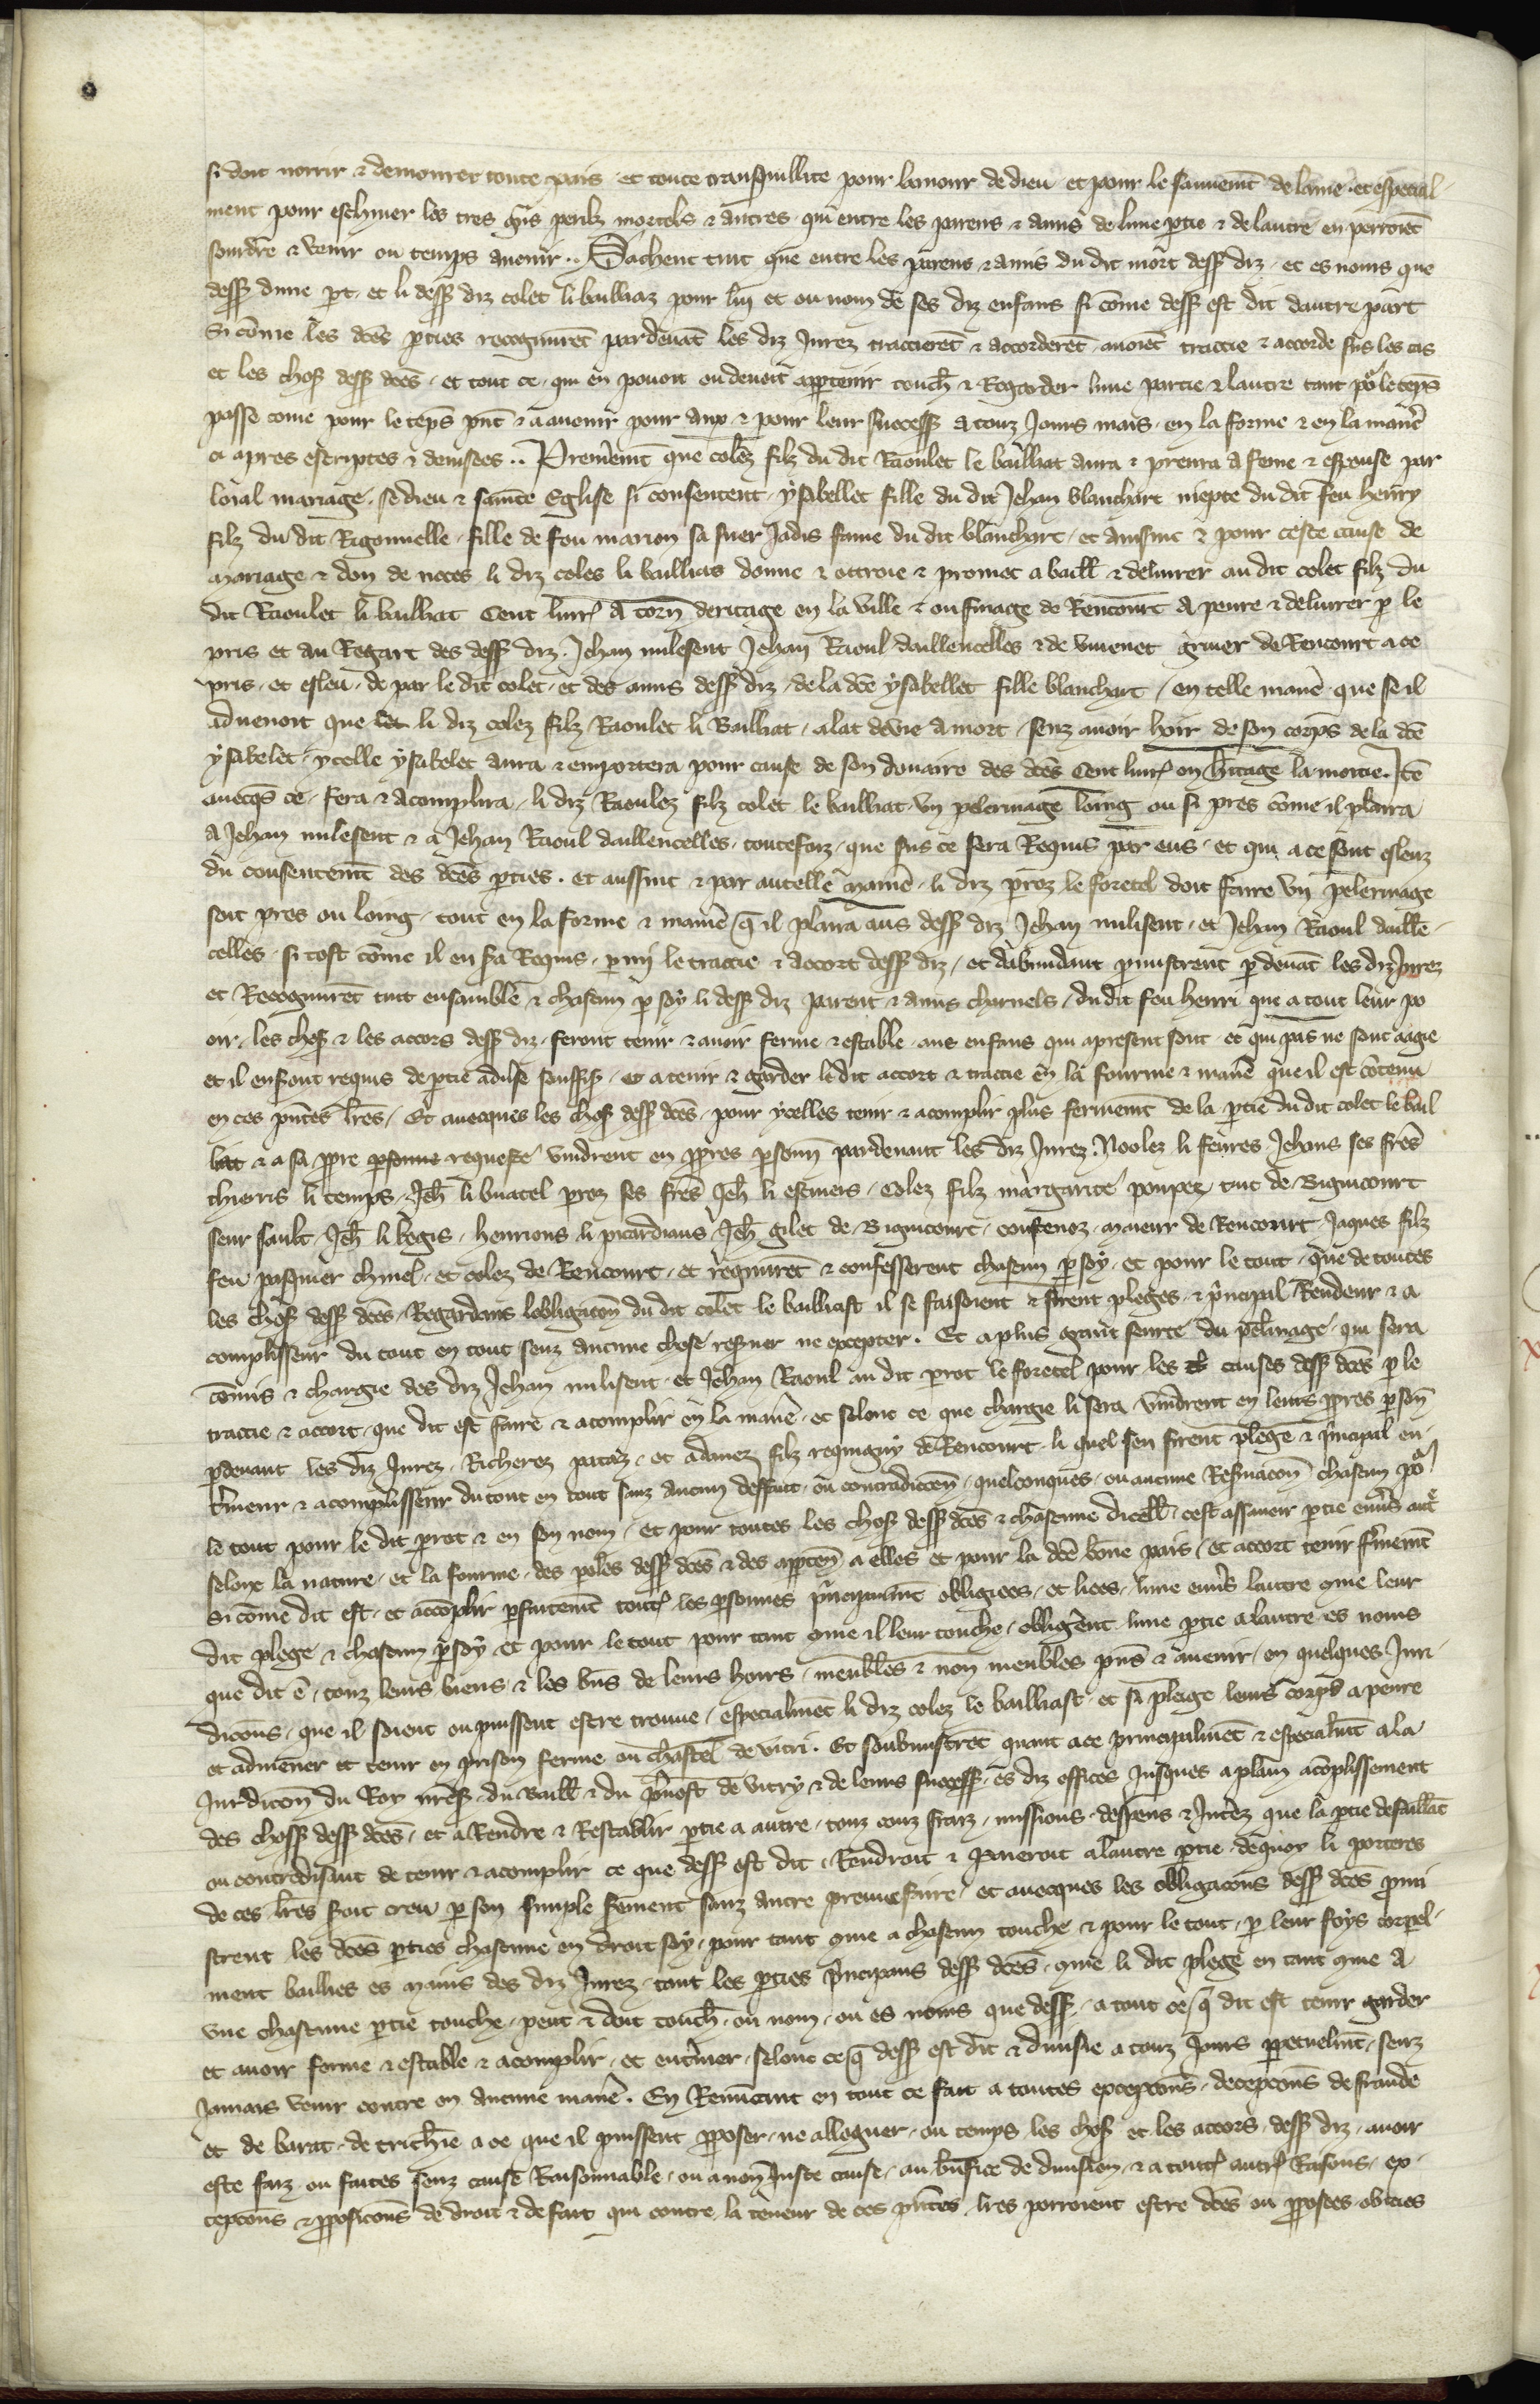 si doit norrir ⁊ demourer toute pais et toute tranquillite pour lamour de dieu et pour le sauuemt̄ de lame et especial
ment pour eschiuer les tres gñs perilz mortels ⁊ autres qui entre les parens ⁊ amis de lune ꝑtie ⁊ de lautre en porroiēt
sourdre ⁊ venir ou temps auenir .. Sachent tuit que entre les parens ⁊ amis du dit mort dess' diz et es noms que
dess' dune ꝑt et li dess' diz colet li bailliaz pour lui et ou nom de ses diz enfans si cōme dess' est dit dautre part
Si cōme les dc̄es ꝑties recognurēt pardeuāt les diz Jurez traictierēt ⁊ accorderēt auoiēt traictie ⁊ accorde sus les cas
et les chos' dess' dc̄es et tout ce qui en pouoit ou deuoit appartenir touch̄ ⁊ Regarder lune partie ⁊ lautre tant po' le tēps
passe come pour le tēps pn̄t ⁊ a auenir pour aux ⁊ pour leur success' a touz Jours mais en la forme ⁊ en la manē
ci apres escriptes ⁊ deuisees .. Premēmt que colez filz du dit Raoulet le bailliat aura ⁊ prenra a feme ⁊ espouse par
loial mariage se dieu ⁊ saincte Eglise si consentent ysabellet fille du dit Jehan blanchart niepce du dit feu henry
filz du dit Rigonnelle fille de feu marion sa suer Jadis fame du dit blanchart et aussinc ⁊ pour ceste cause de
mariage ⁊ don de noces li diz coles li baillias donne ⁊ ottroie ⁊ promet a baill' ⁊ deliurer au dit colet filz du
dit Raoulet li bailliat Cent liur' a torn̄ deritage en la ville ⁊ ou finage de Rencourt a penre ⁊ deliurer ꝑ le
pris et au Regart des dess' diz Jehan milesent Jehan Raoul daillencelles ⁊ de viuenet gruier de Rencourt a ce
pris et esleu de par le dit colet et des amis dess' diz de la dc̄e ysabellet fille blanchart en telle manē que se il
aduenoit que li diz colez filz Raoulet li Bailliat alat de vie a mort senz auoir hoir de son corps de la dc̄e
ysabelet ycelle ysabelet aura ⁊ emportera pour cause de son douaire des dc̄es Cent liur' en hitage la moitie Itē
auecqs ce fera ⁊ acomplira li diz Raoulez filz colet le bailliat vn pelerinage loing ou si pres cōme il plaira
a Jehan milesent ⁊ a Jehan Raoul daillencelles toutefoiz que sus ce sera Requis par eus et qui a ce sont esleuz
du consentemt̄ des dc̄es ꝑties et aussinc ⁊ par autelle manē li diz ꝑroz le foretel doit faire vn pelerinage
soit pres ou loing tout en la forme ⁊ manē q̄ il plaira aus dess' diz Jehan milisent et Jehan Raoul daillē
celles si tost cōme il en s̄a Requis ꝑmi le traictie ⁊ accort dess' diz et dabundant ꝓmistrent ꝑdeuāt les diz Jurez
et Recognurēt tuit ensamble ⁊ chascun ꝑ soy li dess' diz parent ⁊ amis charnels du dit feu henri que a tout leur po
oir les chos' ⁊ les accors dess' diz feront tenir ⁊ auoir ferme ⁊ estable aus enfans qui a present sont et qui pas ne sont aagie
et il en sont requis de ꝑtie aduse souffis' et a tenir ⁊ garder le dit accort ⁊ traictie en la fourme ⁊ manē que il est cōtenu
en ces pn̄tes lr̄es Et auecques les chos' dess' dc̄es pour ycelles tenir ⁊ acomplir plus fermemt̄ de la ꝑtie du dit colet le bail
liat ⁊ a sa ꝓpre ꝑsonne requeste vindrent en ꝓpres ꝑsonn̄ pardeuant les diz Jurez Noolez li feures Jehans ses fr̄es
thieris li temps Jeh̄ li buatel ꝑroz ses fr̄es Jeh̄ li escuiers Colez filz margarite poupez tuit de Bignicourt
seur sault Jeh̄ li begis henrions li picardiaus Jeh̄ gilet de Bignicourt maieur de Rencourt Jaques filz
feu pasquier chiuel et colez de Rencourt et rēgnurēt ⁊ confesserent chascun ꝑ soy et pour le tout que de toutes
les chos' dess' dc̄es Regardans lobligacōn du dit colet le bailliast il se faisoient ⁊ firent pleges ⁊ pñcipal Rendeur ⁊ a
complisseur du tout en tout senz aucune chose reseruer ne excepter. Et a plus grant seurte du pelinage qui sera
cōmis ⁊ chargie des diz Jehan milisent et Jehan Raoul au dit ꝑrot le foretel pour les causes dess' dc̄es ꝑ le
traictie ⁊ accort que dit est faire ⁊ acomplir en la manē et selonc ce que chargie li sera vindrent en leurs ꝓpres ꝑsōn
ꝑdeuant les diz Jurez Richerez pataz et adnuez filz requigny de Rencourt li quel sen firent plege ⁊ pñcipal en
tīneur ⁊ acomplisseur du tout en tout sanz aucun deffaut ou contradicōn quelconques ou aucune Res̄uacōn chascun po'
le tout pour le dit ꝑrot ⁊ en son nom et pour toutes les chos' dess' dc̄es ⁊ chascune dicell' cest assauoir ꝑtie enuers aut'
selonc la nature et la fourme des paroles dess' dc̄es ⁊ des apptēn a elles et pour la dc̄e bōne pais et accort tenir fermemt̄
si cōme dit est et accōplir ꝑfaitemt̄ tout' les ꝑsonnes pñcipaumt̄ obligiees et liees lune enuers lautre cōme leur
dit plege ⁊ chascun ꝑ soy et pour le tout pour tant cōme il leur touche obligent lune ꝑtie a lautre es noms
que dit ē touz leurs biens ⁊ les bn̄s de leurs hoirs meubles ⁊ non meubles pn̄s ⁊ auenir en quelques Juri
dicōns que il soient ou puissent estre trouue especialmēt li diz colez le bailliast et si pleige leurs corps a penre
et admener et tenir en prison ferme ou chastel de vitri. Et soubmistrēt quant a ce principalmēt ⁊ especialmt̄ a la
Jurdicōn du Roy nrēs' du Baill' ⁊ du p̄uost de vitry ⁊ de leurs success' es diz offices Jusques a plain acōplissement
des choss' dess' dc̄es et a Rendre ⁊ Restablir ꝑtie a autre touz couz fraiz missions despens ⁊ Intēz que la ꝑtie defaillāt
ou contredisant de tenir ⁊ acomplir ce que dess' est dit Rendroit ⁊ paieroit a lautre ꝑtie de quoy li porteres
de ces lr̄es soit creu ꝑ son simple s̄ement sanz autre preuue faire et auecques les obligacōns dess' dc̄es ꝓmi
strent les dc̄es ꝑties chascune en droit soy pour tant cōme a chascun touche ⁊ pour le tout ꝑ leur foys corpel
ment baillies es mains des diz Jurez tant les ꝑties pñcipaus dess' dc̄es cōme li dit plege en tant cōme a
vne chascune ꝑtie touche peut ⁊ doit touch̄ ou nom ou es noms que dess' a tout ce q̄ dit est tenir garder
et auoir ferme ⁊ estable ⁊ acomplir et entīner selonc ce q̄ dess' est dit ⁊ diuise a touz Jours ꝑpetuelmt̄ senz
Jamais venir contre en aucune manē. En Renūcant en tout ce fait a toutes excepcōns decepcōns de fraude
et de barat de tricherie a ce que il puissent ꝓposer ne alleguer ou temps les chos' et les accors dess' diz auoir
este faiz ou faites senz cause Raisonnable ou a non Juste cause au bn̄fice de diuision ⁊ a tout' autr' Raisons ex
cepcōns ⁊ ꝓposicōns de droit ⁊ de fait qui contre la teneur de ces pn̄tes lr̄es porroient estre dc̄es ou ꝓposees obicies